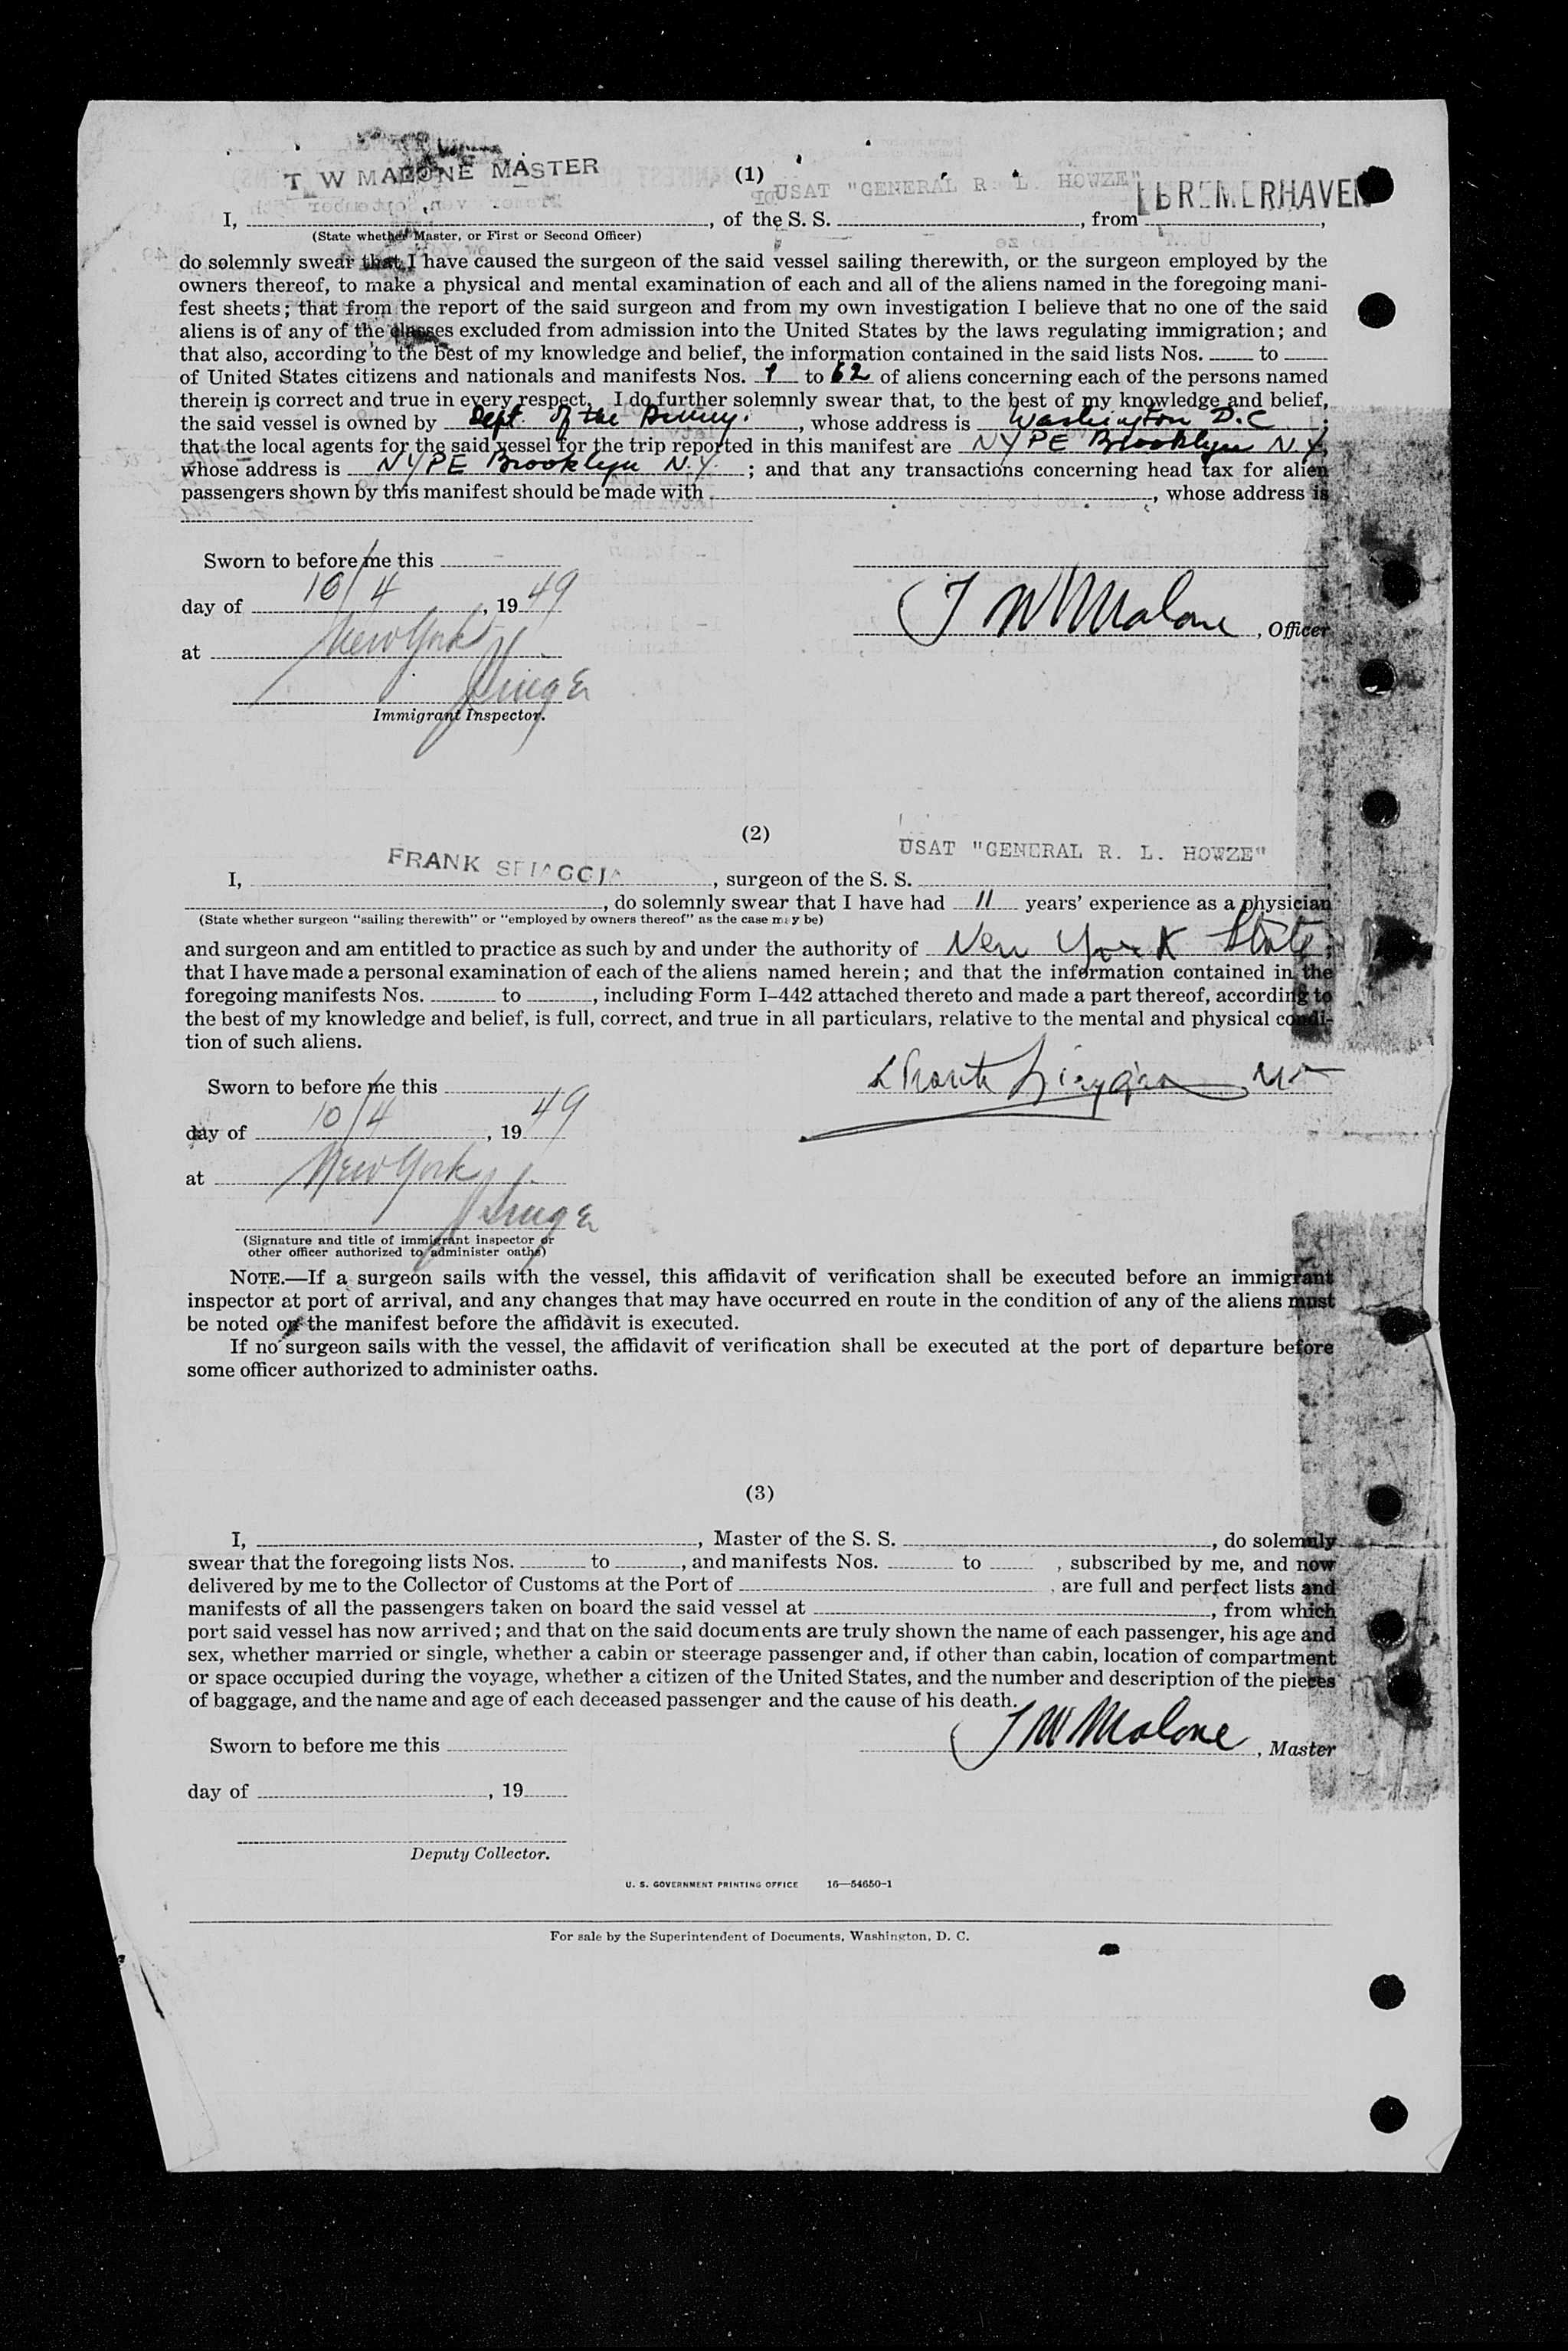 T W MALONE MASTER
(1)
USAT "GENERAL R. L. HOWZE"
BREMERHAVEN
I, , of the S. S. , from ,
(State whether Master, or First or Second Officer)
do solemnly swear that I have caused the surgeon of the said vessel sailing therewith, or the surgeon employed by the
owners thereof, to make a physical and mental examination of each and all of the aliens named in the foregoing mani-
fest sheets; that from the report of the said surgeon and from my own investigation I believe that no one of the said
aliens is of any of the classes excluded from admission into the United States by the laws regulating immigration; and
that also, according to the best of my knowledge and belief, the information contained in the said lists Nos. to
of United States citizens and nationals and manifests Nos. 1 to 62 of aliens concerning each of the persons named
therein is correct and true in every respect. I do further solemnly swear that, to the best of my knowledge and belief,
the said vessel is owned by Dept. of the Army. , whose address is Washington D.C ;
that the local agents for the said vessel for the trip reported in this manifest are NYPE Brooklyn N.Y.,
whose address is NYPE Brooklyn N.Y. ; and that any transactions concerning head tax for alien
passengers shown by this manifest should be made with , whose address is
Sworn to before me this
day of 10/4 , 19 49
T W Malone , Officer
at New York
Immigrant Inspector.
(2)
USAT "GENERAL R. L. HOWZE"
FRANK
I, , surgeon of the S. S.
, do solemnly swear that I have had 11 years' experience as a physician
(State whether surgeon "sailing therewith" or "employed by owners thereof" as the case may be)
and surgeon and am entitled to practice as such by and under the authority of New York State;
that I have made a personal examination of each of the aliens named herein; and that the information contained in the
foregoing manifests Nos. to , including Form I-442 attached thereto and made a part thereof, according to
the best of my knowledge and belief, is full, correct, and true in all particulars, relative to the mental and physical condi-
tion of such aliens.
Sworn to before me this
day of 10/4 , 19 49
at New York
(Signature and title of immigrant inspector or
other officer authorized to administer oaths)
NOTE.—If a surgeon sails with the vessel, this affidavit of verification shall be executed before an immigrant
inspector at port of arrival, and any changes that may have occurred en route in the condition of any of the aliens must
be noted on the manifest before the affidavit is executed.
If no surgeon sails with the vessel, the affidavit of verification shall be executed at the port of departure before
some officer authorized to administer oaths.
(3)
I, , Master of the S. S. , do solemnly
swear that the foregoing lists Nos. to , and manifests Nos. to , subscribed by me, and now
delivered by me to the Collector of Customs at the Port of , are full and perfect lists and
manifests of all the passengers taken on board the said vessel at , from which
port said vessel has now arrived; and that on the said documents are truly shown the name of each passenger, his age and
sex, whether married or single, whether a cabin or steerage passenger and, if other than cabin, location of compartment
or space occupied during the voyage, whether a citizen of the United States, and the number and description of the pieces
of baggage, and the name and age of each deceased passenger and the cause of his death.
Sworn to before me this
T W Malone , Master
day of , 19
Deputy Collector.
U. S. GOVERNMENT PRINTING OFFICE 16—54650-1
For sale by the Superintendent of Documents, Washington, D. C.